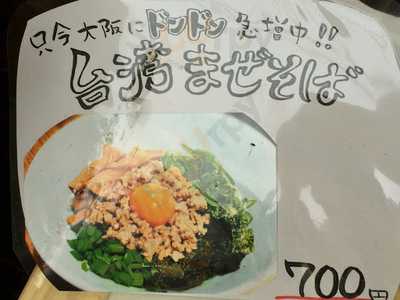 只今大阪にドンドン急増中!!
台湾まぜそば
700円